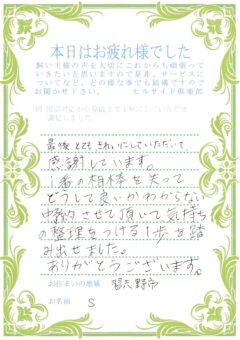 本日はお疲れ様でした
飼い主様の声を大切にこれからも頑張って
いきたいと思いますので是非、サービスに
ついてなど、どの様な事でも結構ですので
お聞かせ下さい。 ヒルサイド倶楽部
電話対応から葬儀まで丁寧にしていただき
満足しました
最後とてもきれいにしていただいて、
感謝しています。
1番の相棒を失って
どうして良いかわからない
中 させて頂いて気持ち
の整理をつける1歩を踏
み出せました。
ありがとうございます。
お住まいの地域 習志野市
お名前 S